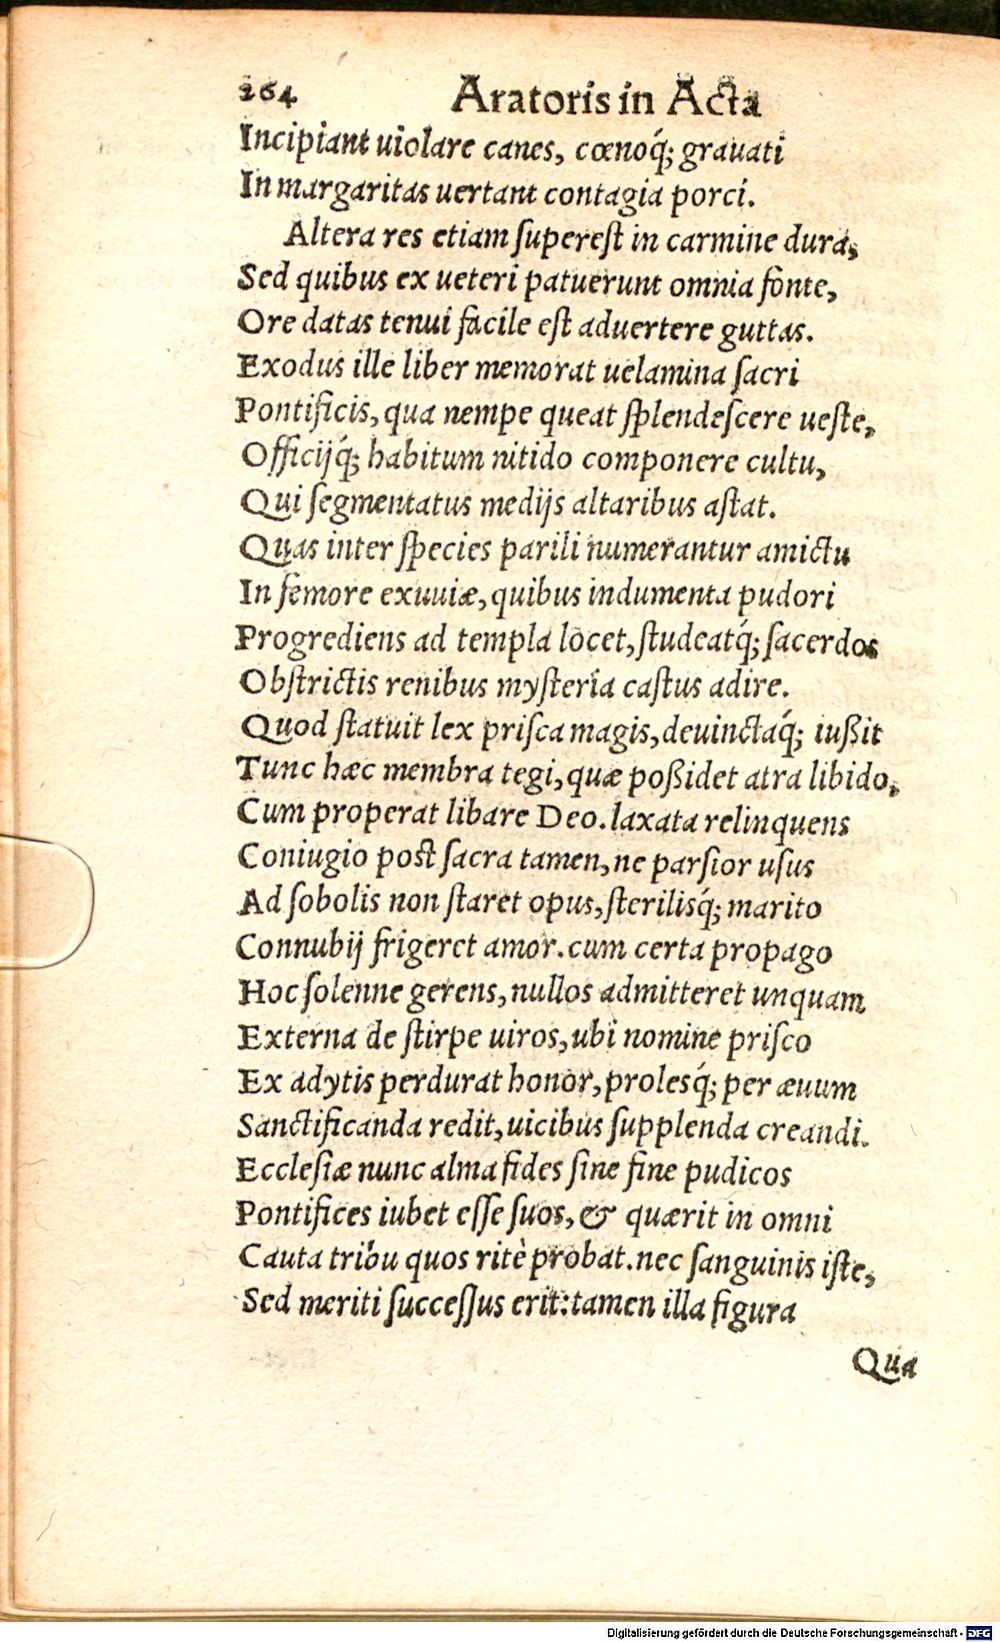 264 Aratoris in Acta
Incipiant uiolare canes, cœnoq́; grauati
In margaritas uertant contagia porci.
Altera res etiam ſupereſt in carmine dura,
Sed quibus ex ueteri patuerunt omnia fonte,
Ore datas tenui facile eſt aduertere guttas.
Exodus ille liber memorat uelamina ſacri
Pontificis, qua nempe queat ſplendeſcere ueſte,
Officijq́; habitum nitido componere cultu,
Qui ſegmentatus medijs altaribus aſtat.
Quas inter ſpecies parili numerantur amictu
In femore exuuiæ, quibus indumenta pudori
Progrediens ad templa locet, ſtudeatq́; ſacerdos
Obſtrictis renibus myſteria caſtus adire.
Quod ſtatuit lex priſca magis, deuinctaq́; iußit
Tunc hæc membra tegi, quæ poßidet atra libido,
Cum properat libare Deo. laxata relinquens
Coniugio poſt ſacra tamen, ne parſior uſus
Ad ſobolis non ſtaret opus, ſterilisq́; marito
Connubij frigeret amor. cum certa propago
Hoc ſolenne gerens, nullos admitteret unquam
Externa de ſtirpe uiros, ubi nomine priſco
Ex adytis perdurat honor, prolesq́; per æuum
Sanctificanda redit, uicibus ſupplenda creandi.
Eccleſiæ nunc alma fides ſine fine pudicos
Pontifices iubet eſſe ſuos, & quærit in omni
Cauta tribu quos ritè probat. nec ſanguinis iſte,
Sed meriti ſucceſſus erit: tamen illa figura
Qua
Digitalisierung gefördert durch die Deutsche Forschungsgemeinschaft - DFG